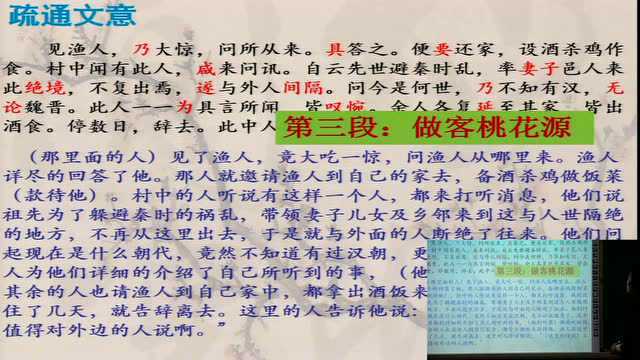 疏通文意
见渔人，乃大惊，问所从来。具答之。便要还家，设酒杀鸡作
食。村中闻有此人，咸来问讯。自云先世避秦时乱，率妻子邑人来
此绝境，不复出焉，遂与外人间隔。问今是何世，乃不知有汉，无
论魏晋。此人一一为具言所闻，皆叹惋。余人各复延至其家，皆出
酒食。停数日，辞去。此中人
第三段：做客桃花源
（那里面的人）见了渔人，竟大吃一惊，问渔人从哪里来。渔人
详尽的回答了他。那人就邀请渔人到自己的家去，备酒杀鸡做饭菜
（款待他）。村中的人听说有这样一个人，都来打听消息，他们说
祖先为了躲避秦时的祸乱，带领妻子儿女及乡邻来到这与人世隔绝
的地方，不再从这里出去，于是就与外面的人断绝了往来。他们问
起现在是什么朝代，竟然不知道有过汉朝，更
人为他们详细的介绍了自己所听到的事，（他
其余的人也请渔人到自己家中，都拿出酒饭来
住了几天，就告辞离去。这里的人告诉他说：
值得对外边的人说啊。”
第三段：做客桃花源